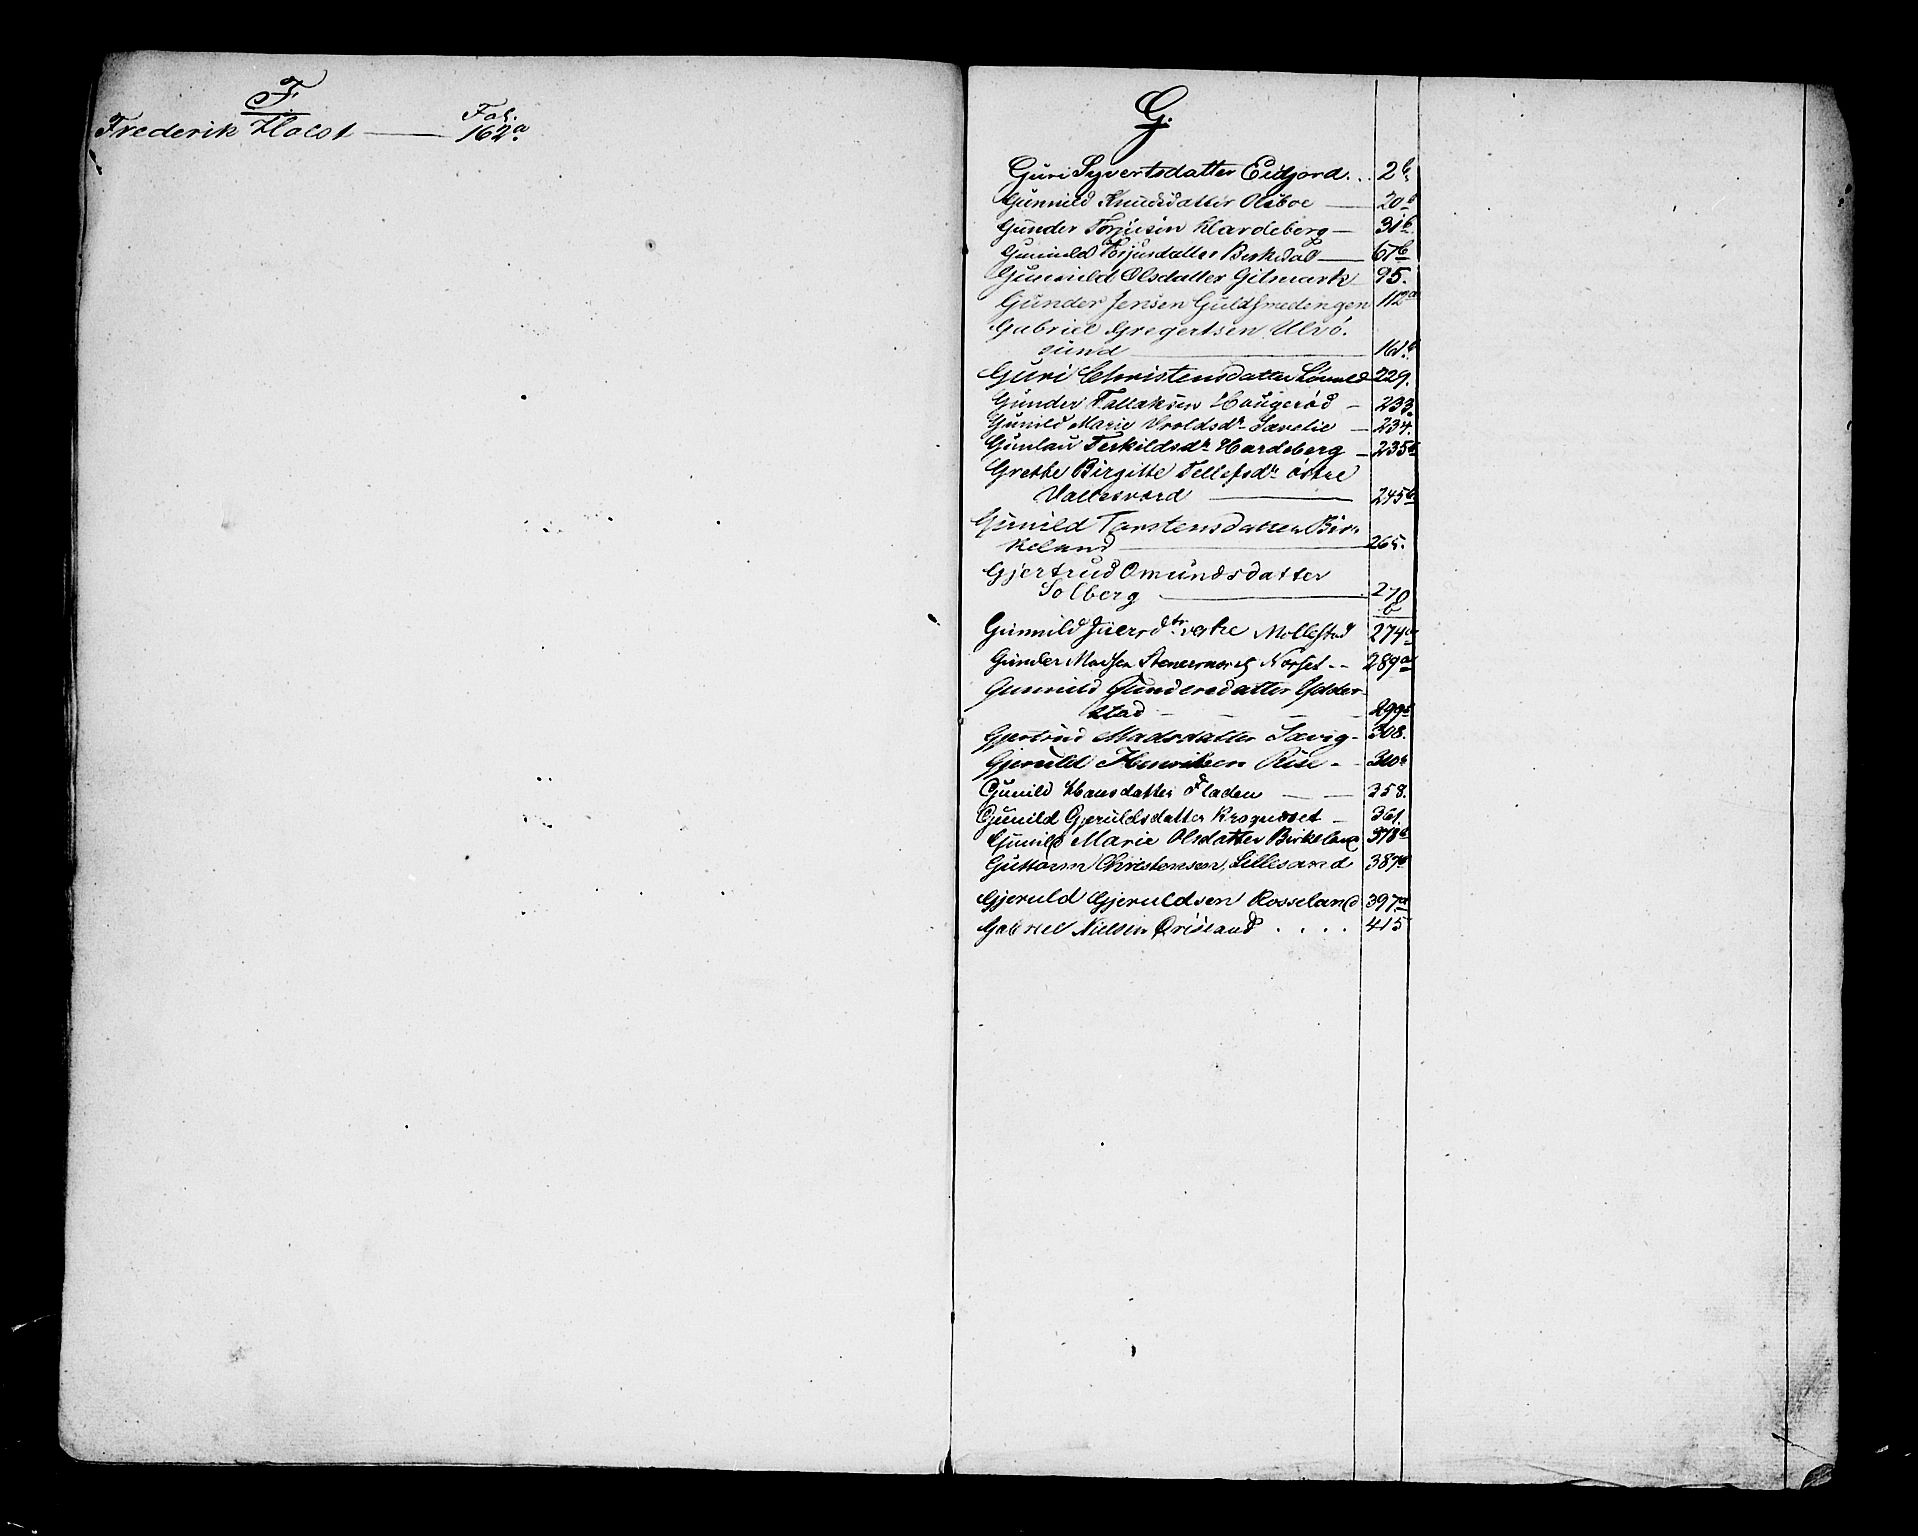 F
Fol.
Frederik Holst — 162a
G.
Guri Syvertsdatter Eidjord . . 2b.
Gunnild Knudsdatter Olsboe — 20b
Gunder Torjusen Hardeberg — 31b.
Gunnild Torjusdatter Birkedal — 67b
Gunnild Olsdatter Gitmark 95.
Gunder Jensen Guldsmedengen 112a
Gabriel Gregertsen Ulvö-
sund — 161b
Guri Christensdatter 229.
Gunder Tallaksen Haugerød — 233.
Gunild Marie Vroldsdr Sævelie — 234.
Gunlau Terkildsdr Hardeberg — 235b
Grethe Birgitte Tellefsdr østre
Vallesværd — 245b
Gunild Tarstensdatter Bir-
keland — 265.
Gjertrud Omundsdatter
Solberg — 270
b
Gunnild Juersdtr. vestre Mollestad 274a
Gunder Madsen Norset - - 289a
Gunnild Gundersdatter Ydder-
stad — 299b
Gjertrud Madsdatter Sævig - 308.
Gjeruld Henriksen Rise - - 310b
Gunild Hansdatter Fladen — 358.
Gunild Gjeruldsdatter Krognæset — 361.
Gunild Marie Olsdatter Birkeland 378b
Guttorm Christensen, Lillesand 387a
Gjeruld Gjeruldsen Rosseland 397a
Gabriel Nielsen . . . . 415